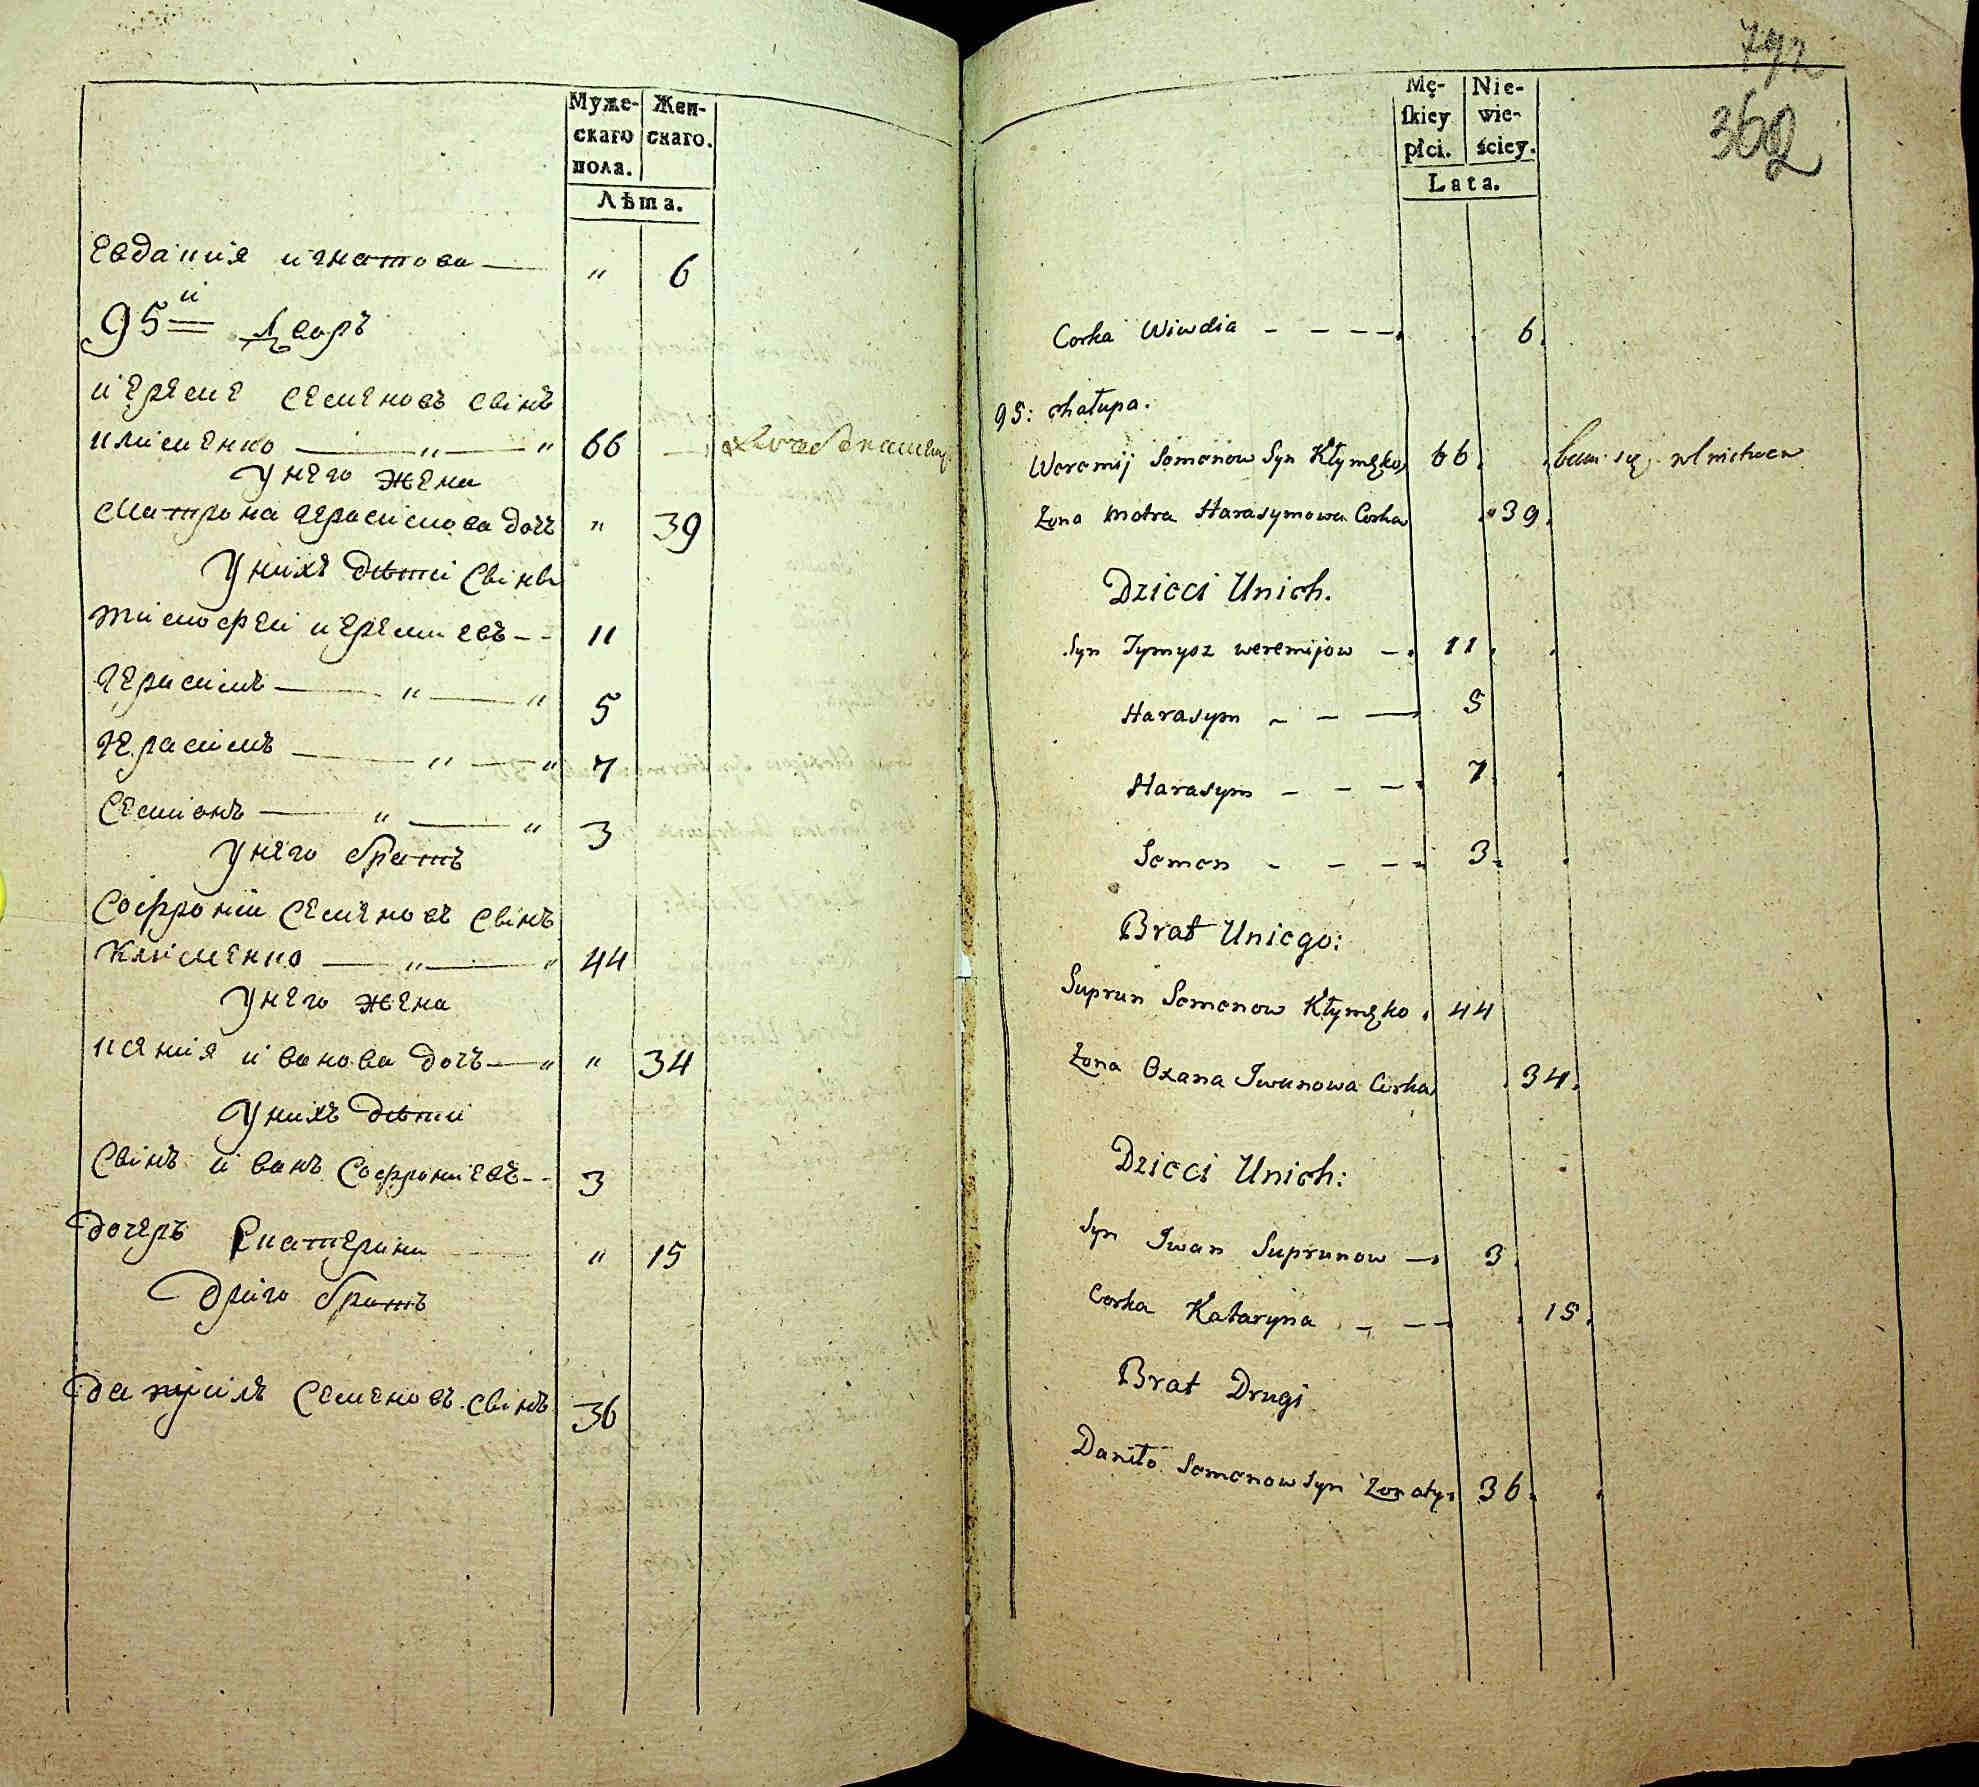 Муже-
скаго
пола.
Жен-
скаго.
Лѣта.
Евдакия игнатова — " 6
95й Дворъ
иереме семеновъ синъ
клименко — " — " 66
У него жена
матрона герасимова дочь " 39
У нихъ дѣти сини
тимофеи иеремиевъ - - 11
герасимъ — " — " 5
герасимъ — " — " 7
семионъ — " — " 3
У него братъ
Софрони семеновъ синъ
Клименко — " — " 44
У него жена
ксения иванова дочь — " " 34
У нихъ дѣти
синъ иванъ Софрониевъ - - 3
дочеръ Екатерина " 15
другой братъ
данииль семеновъ синъ 36
792
362
Mę-
ſkiey
płci.
Nie-
wie-
ściey.
Lata.
Corka Wiwdia - - - - 6.
95: chałupa.
Weremij Semenow Syn Kłymęko 66
Żona Motra Harasymowa Corka 39.
Dzieci Unich.
Syn Tymysz weremijow - 11
Harasym - - - 5
Harasym - - - 7
Semen - - - 3
Brat Uniego:
Suprun Semenow Kłymęko 44
Żona Oxana Iwanowa Corka 34.
Dzieci Unich:
Syn Iwan Suprunow - 3.
Corka Kataryna - - - 15.
Brat Drugi
Daniło Semenow syn Żonaty 36.